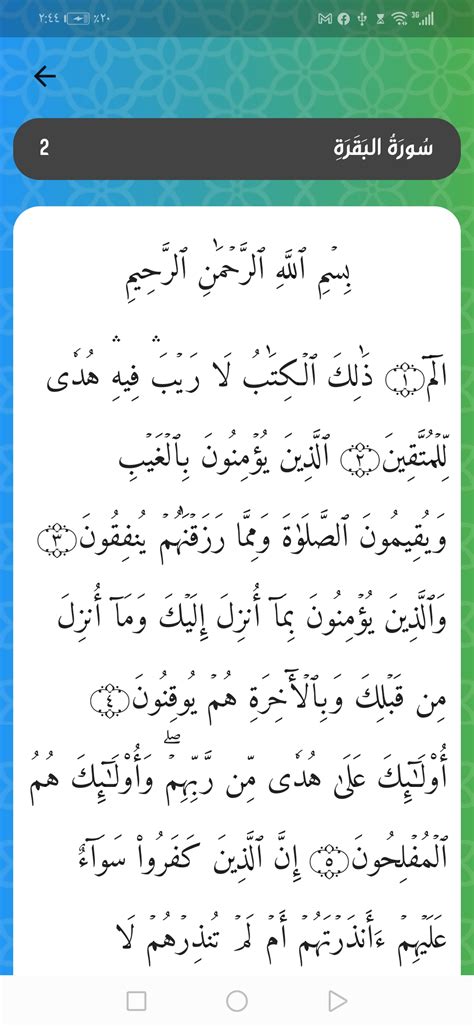 ٢:٤٤ ٪٢٠ 3G
سُورَةُ البَقَرَةِ 2
بِسْمِ ٱللَّهِ ٱلرَّحْمَٰنِ ٱلرَّحِيمِ
الٓمٓ ۝١ ذَٰلِكَ ٱلْكِتَٰبُ لَا رَيْبَ ۛ فِيهِ ۛ هُدًى
لِّلْمُتَّقِينَ ۝٢ ٱلَّذِينَ يُؤْمِنُونَ بِٱلْغَيْبِ
وَيُقِيمُونَ ٱلصَّلَوٰةَ وَمِمَّا رَزَقْنَٰهُمْ يُنفِقُونَ ۝٣
وَٱلَّذِينَ يُؤْمِنُونَ بِمَآ أُنزِلَ إِلَيْكَ وَمَآ أُنزِلَ
مِن قَبْلِكَ وَبِٱلْأَخِرَةِ هُمْ يُوقِنُونَ ۝٤
أُوْلَٰٓئِكَ عَلَىٰ هُدًى مِّن رَّبِّهِمْ ۖ وَأُوْلَٰٓئِكَ هُمُ
ٱلْمُفْلِحُونَ ۝٥ إِنَّ ٱلَّذِينَ كَفَرُوا۟ سَوَآءٌ
عَلَيْهِمْ ءَأَنذَرْتَهُمْ أَمْ لَمْ تُنذِرْهُمْ لَا